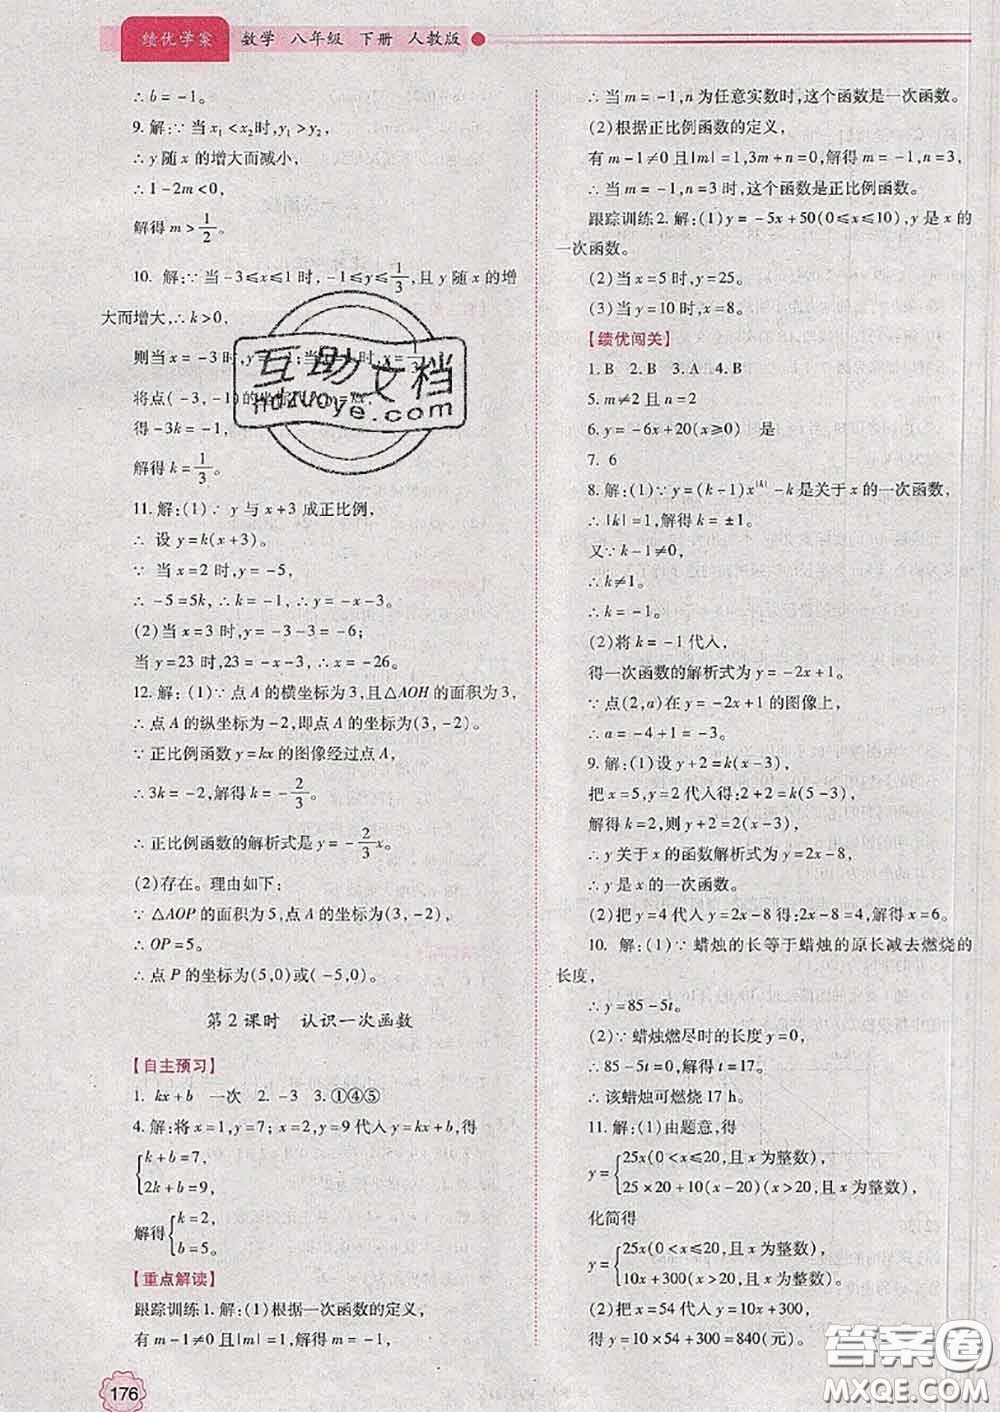 绩优学案 数学·八年级 下册 人教版
∴b=-1。
9.解:∵当x₁<x₂时,y₁>y₂,
∴y随x的增大而减小,
∴1-2m<0,
解得m>1/2。
10. 解:∵当-3≤x≤1时,-1≤y≤1/3,且y随x的增
大而增大,∴k>0,
则当x=-3时,y=
将点(-3,-1)
得-3k=-1,
解得k=1/3。
11.解:(1)∵y与x+3成正比例,
∴设y=k(x+3)。
∵当x=2时,y=-5,
∴-5=5k,∴k=-1,∴y=-x-3。
(2)当x=3时,y=-3-3=-6;
当y=23时,23=-x-3,∴x=-26。
12.解:(1)∵点A的横坐标为3,且△AOH的面积为3,
∴点A的纵坐标为-2,即点A的坐标为(3,-2)。
∵正比例函数y=kx的图像经过点A,
∴3k=-2,解得k=-2/3。
∴正比例函数的解析式是y=-2/3x。
(2)存在。理由如下:
∵△AOP的面积为5,点A的坐标为(3,-2),
∴OP=5。
∴点P的坐标为(5,0)或(-5,0)。
第2课时 认识一次函数
【自主预习】
1. kx+b 一次 2. -3 3.①④⑤
4.解:将x=1,y=7;x=2,y=9代入y=kx+b,得
{k+b=7,
2k+b=9,
解得{k=2,
b=5。
【重点解读】
跟踪训练1.解:(1)根据一次函数的定义,
有m-1≠0且|m|=1,解得m=-1,
∴当m=-1,n为任意实数时,这个函数是一次函数。
(2)根据正比例函数的定义,
有m-1≠0且|m|=1,3m+n=0,解得m=-1,n=3,
∴当m=-1,n=3时,这个函数是正比例函数。
跟踪训练2.解:(1)y=-5x+50(0≤x≤10),y是x的
一次函数。
(2)当x=5时,y=25。
(3)当y=10时,x=8。
【绩优闯关】
1.B 2.B 3.A 4.B
5.m≠2且n=2
6.y=-6x+20(x≥0) 是
7. 6
8.解:(1)∵y=(k-1)x^|k|-k是关于x的一次函数,
∴|k|=1,解得k=±1。
又∵k-1≠0,
∴k≠1。
∴k=-1。
(2)将k=-1代入,
得一次函数的解析式为y=-2x+1。
∵点(2,a)在y=-2x+1的图像上,
∴a=-4+1=-3。
9.解:(1)设y+2=k(x-3),
把x=5,y=2代入得:2+2=k(5-3),
解得k=2,则y+2=2(x-3),
∴y关于x的函数解析式为y=2x-8,
∴y是x的一次函数。
(2)把y=4代入y=2x-8得:2x-8=4,解得x=6。
10. 解:(1)∵蜡烛的长等于蜡烛的原长减去燃烧的
长度,
∴y=85-5t。
(2)∵蜡烛燃尽时的长度y=0,
∴85-5t=0,解得t=17。
∴该蜡烛可燃烧17 h。
11.解:(1)由题意,得
y={25x(0<x≤20,且x为整数),
25×20+10(x-20)(x>20,且x为整数),
化简得
y={25x(0<x≤20,且x为整数),
10x+300(x>20,且x为整数)。
(2)把x=54代入y=10x+300,
得y=10×54+300=840(元)。
176
互助文档
hdzuoye.com
答案圈
MXQE.COM